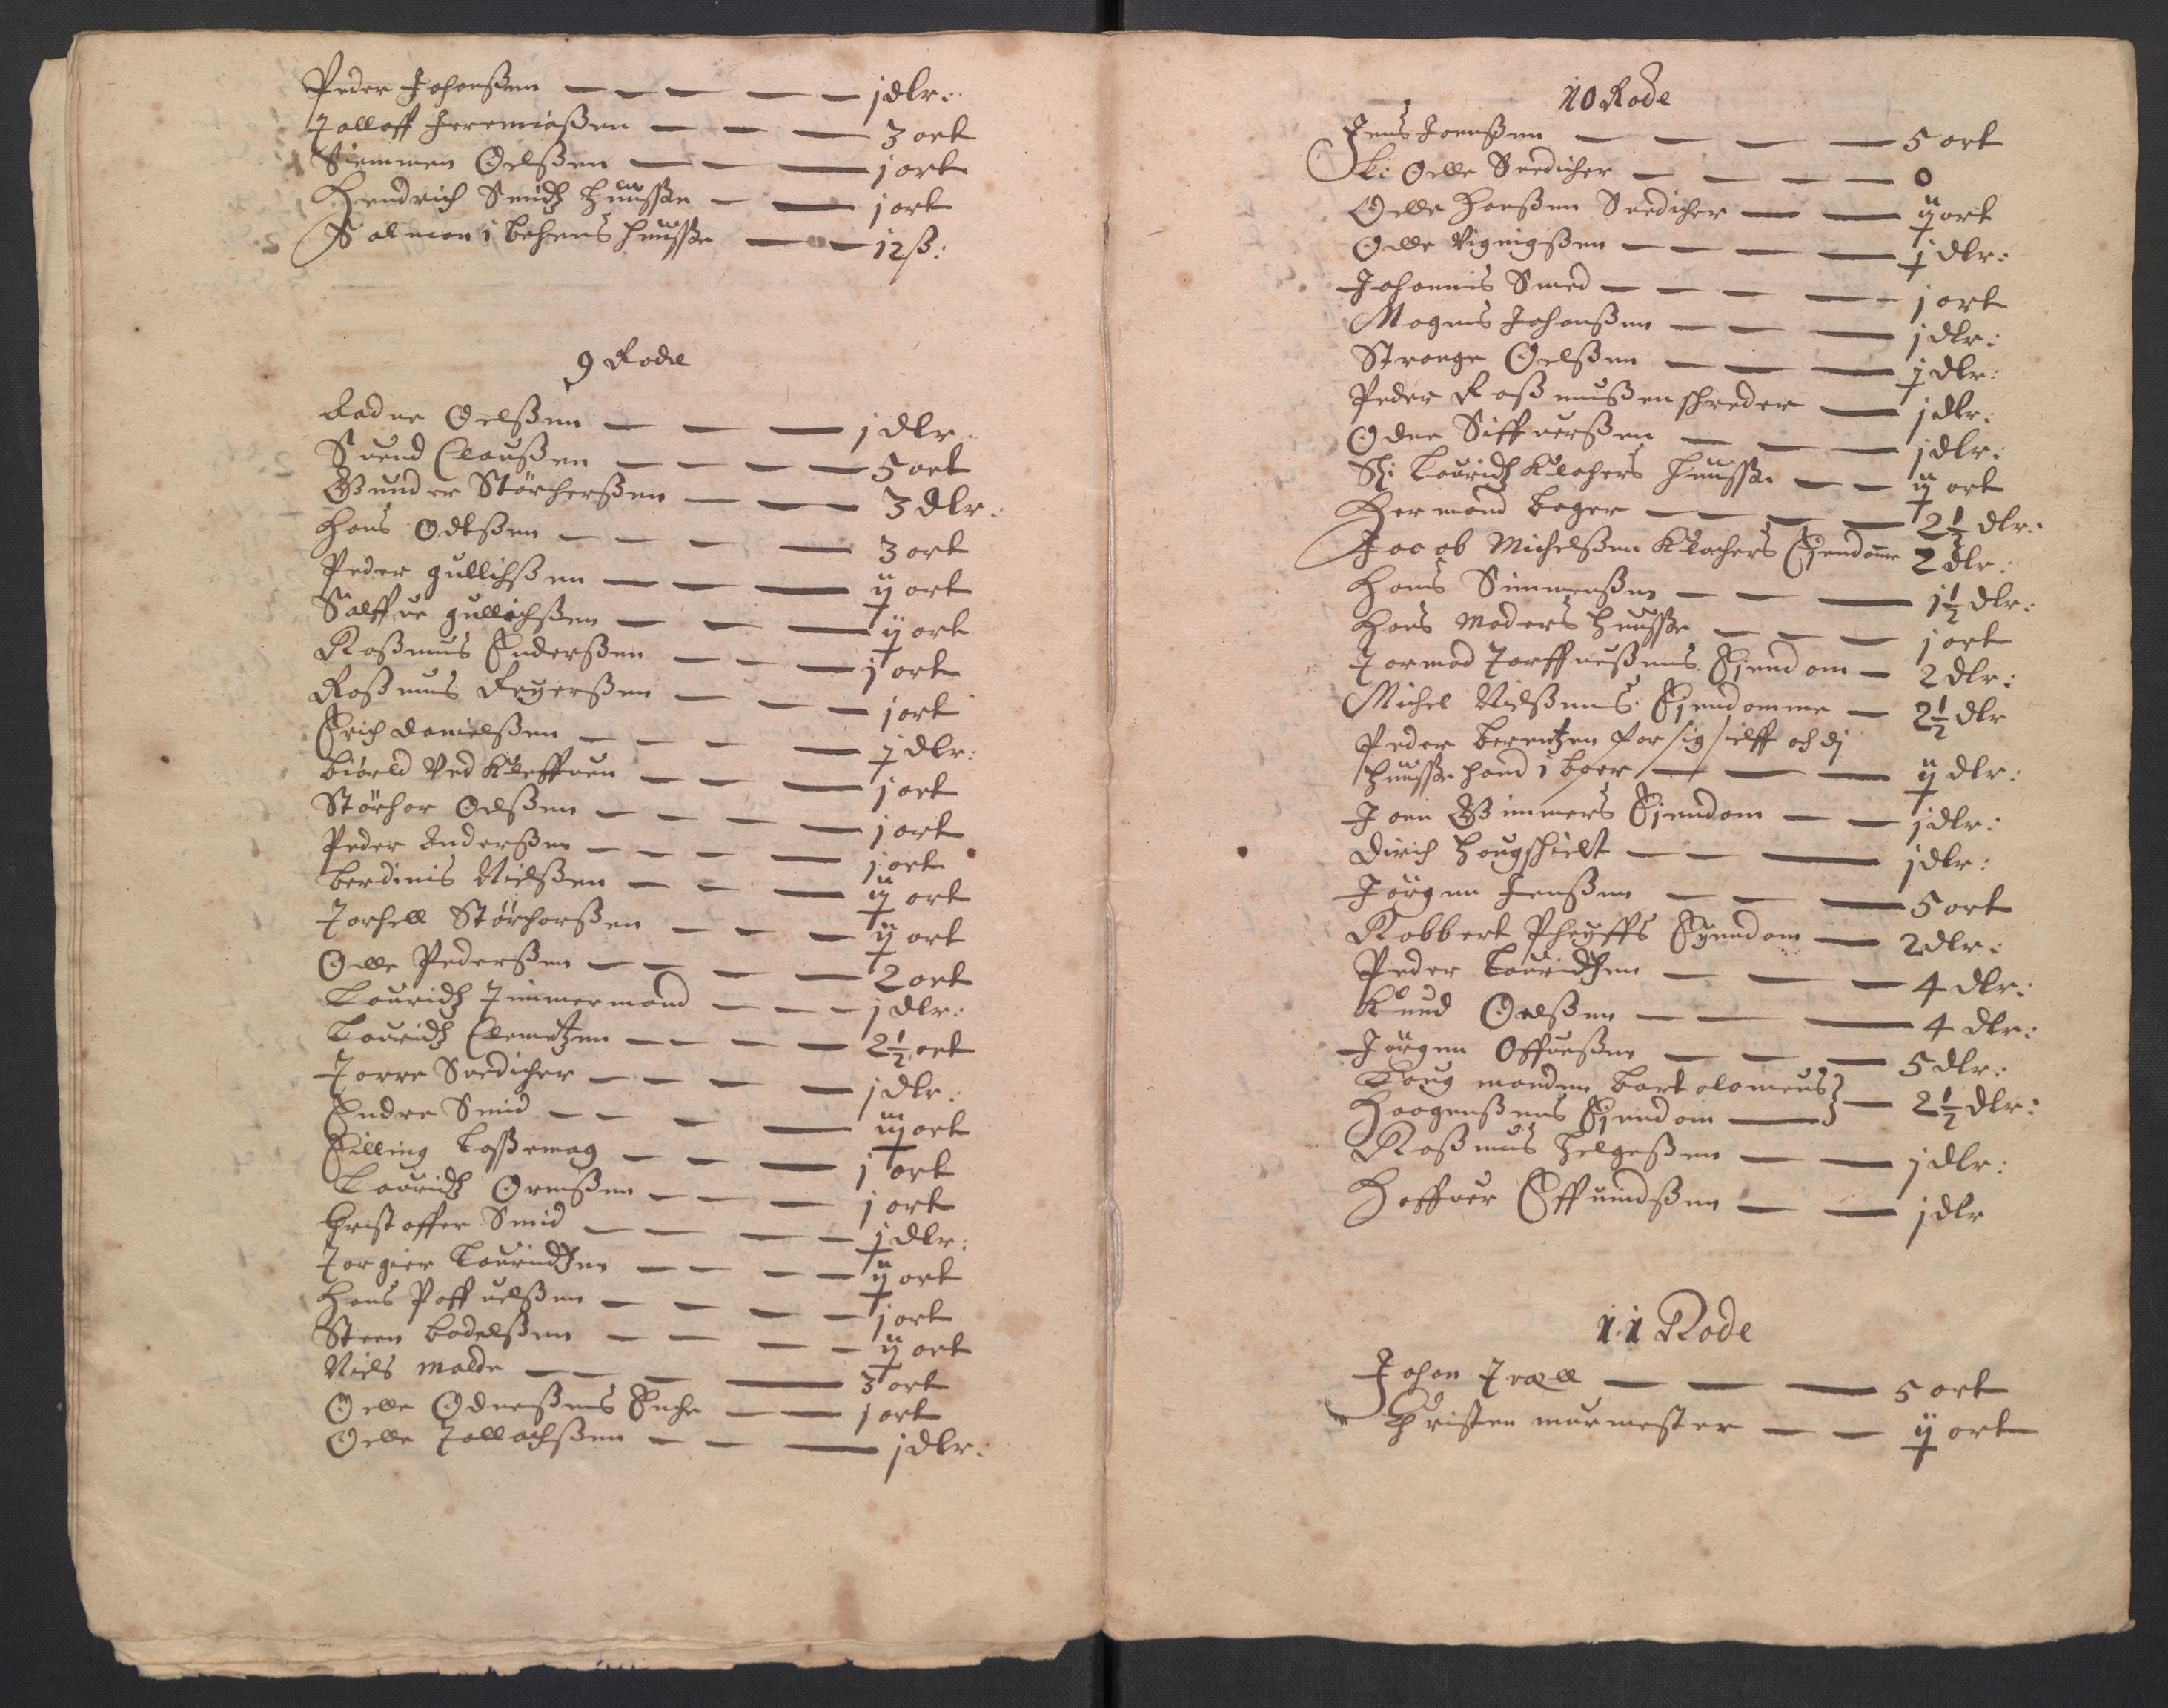 Peder Johanßen — — — — — j dlr:
Tolloff Jeremiaßen — — — 3 ort
Siemmen Oelßen — — — j ort
Hendrich Smidtz Huusße — — j ort
Salmon i Behrns Huusße — — 12 ß:
9 Rode
Radne Oelßen — — — j dlr
Suend Claußen — — — — 5 ort
Gunder Störcherßen — — — 3 dlr:
Hans Odtßen — — — — 3 ort
Peder gullichßen — — — ij ort
Salffue gullichßen — — — ij ort
Raßmus Enderßen — — — j ort
Raßmus Reyerßen — — — j ort
Erich Danielßen — — — — j dlr:
Biörld Ved Kleffuen — — — j ort
Störchor Oelßen — — — — j ort
Peder Anderßen — — — — j ort
Berdinis Nielßen — — — ij ort
Torkell Störchorßen — — — ij ort
Olle Pederßen — — — — 2 ort
Lauridtz Timmermand — — — j dlr:
Lauridtz Clemetzen — — — — 2½ ort
Torre Snedicher — — — — j dlr:
Endre Smid — — — — iij ort
Elling Laßemag — — — j ort
Lauridtz Ormßen — — — j ort
Christoffer Smid — — — — j dlr:
Torgier Lauridtzen — — — — ij ort
Hans Poffuelßen — — — — j ort
Steen Bodelßen — — — — ij ort
Niels Malde — — — — 3 ort
Olle Odneßens Encke — — j ort
Olle Tollachßen — — — j dlr:
10 Rode
Jens Joenßen — — — — 5 ort
Olle Snedicher — — — — 0
Olle Hanßen Snedicher — — ij ort
Olle Vignigßen — — — — j dlr:
Johannis Smed — — — — j ort
Mogens Johanßen — — — j dlr:
Strange Oelßen — — — j dlr:
Peder Raßmußen schreder — j dlr:
Odne Siffuerßen — — — j dlr:
Lauridtz Klochers Huusße — — ij ort
Hermand Bager — — — — 2½ dlr:
Jacob Michelßen Klochers Eiendomme 2 dlr:
Hans Simmenßen — — — 1½ dlr:
Hans Maders Huusße — — — j ort
Tormod Torffueßens Eiendom — 2 dlr:
Michel Nielßens Eiendomme — 2½ dlr
Peder Berentzen for sig sielff och dj
Huusße hand i boer — — — ij dlr:
Joen Gimmers Eiendom — — j dlr:
Dirich Hougschielt — — — j dlr:
Jörgen Jenßen — — — 5 ort
Robbert Pheyffs Eyendom — 2 dlr:
Peder Lauridtzen — — — 4 dlr:
Knud Oelßen — — — 4 dlr:
Jörgen Offueßen — — — 5 dlr:
Laug manden Bartolomeus
Haagenßens Eiendom — } — 2½ dlr:
Raßmus Helgeßen — — j dlr:
Haffuer Effuindßen — — j dlr
11 Rode
Johan Træll — — — 5 ort
Christen murmester — — ij ort